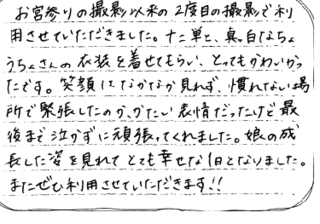 お宮参りの撮影以来の2度目の撮影で利
用させていただきました。十二単と、真っ白なちょ
うちょさんの衣装を着せてもらい、とってもかわいかっ
たです。笑顔はなかなか見れず、慣れない場
所で緊張したのか、かたい表情だったけど最
後まで泣かずに頑張ってくれました。娘の成
長した姿を見れてとても幸せな1日となりました。
またぜひ利用させていただきます!!